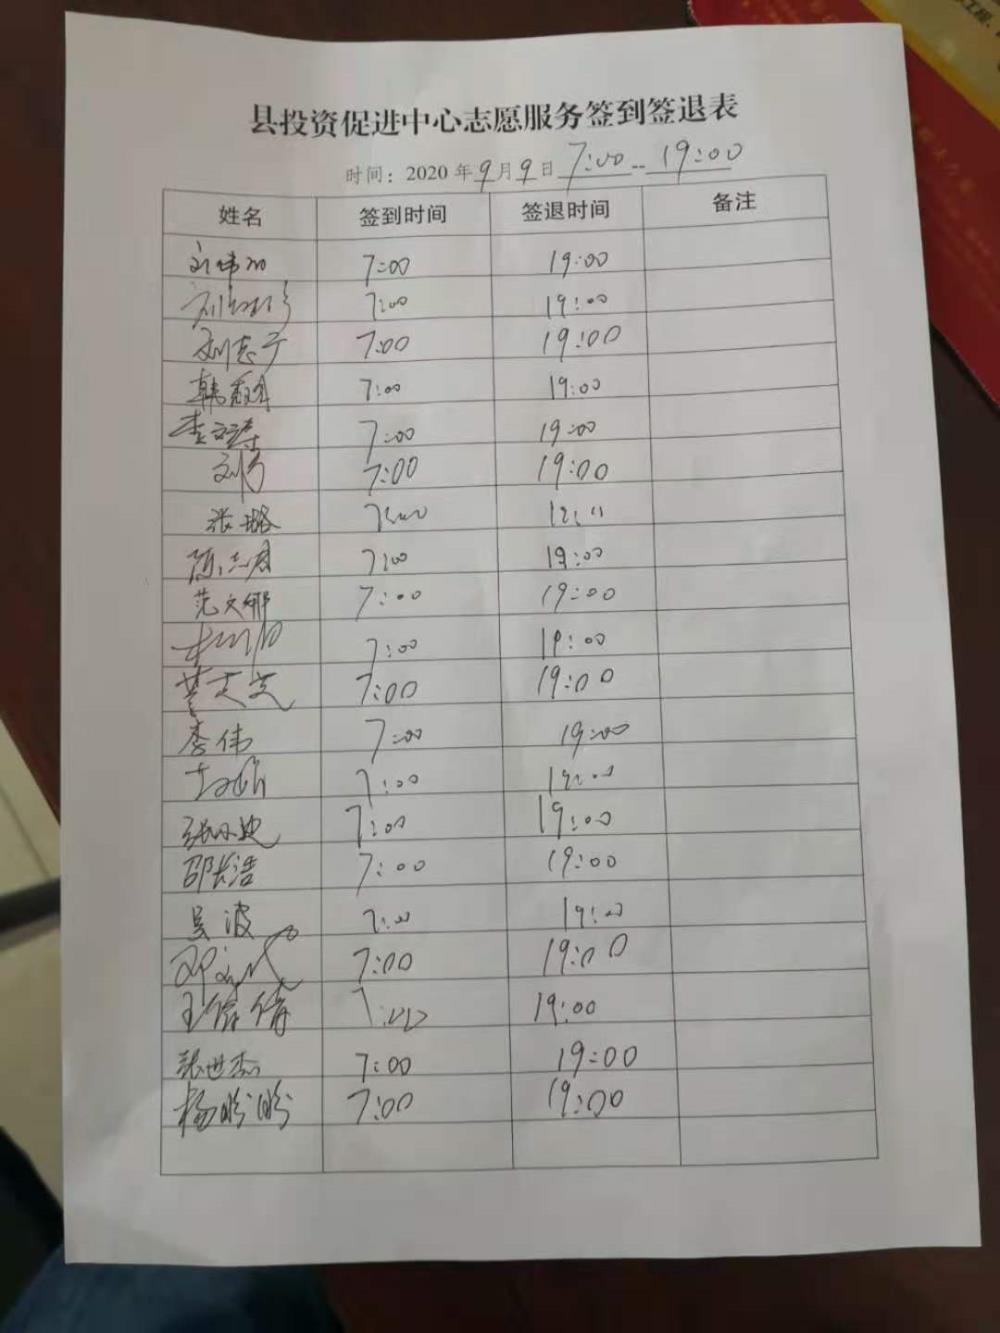 工程、
县投资促进中心志愿服务签到签退表
时间：2020年9月9日 7:00--19:00
姓名 签到时间 签退时间 备注
刘伟 7:00 19:00
刘 7:00 19:00
刘志宁 7:00 19:00
韩 7:00 19:00
李文涛 7:00 19:00
刘 7:00 19:00
张璐 7:00
陈志君 7:00 19:00
范文娜 7:00 19:00
7:00 19:00
7:00 19:00
李伟 7:00 19:00
7:00 19:00
张小迪 7:00 19:00
邵长浩 7:00 19:00
吴波 7:00 19:00
邓 7:00 19:00
王倩倩 7:00 19:00
张世杰 7:00 19:00
杨盼盼 7:00 19:00